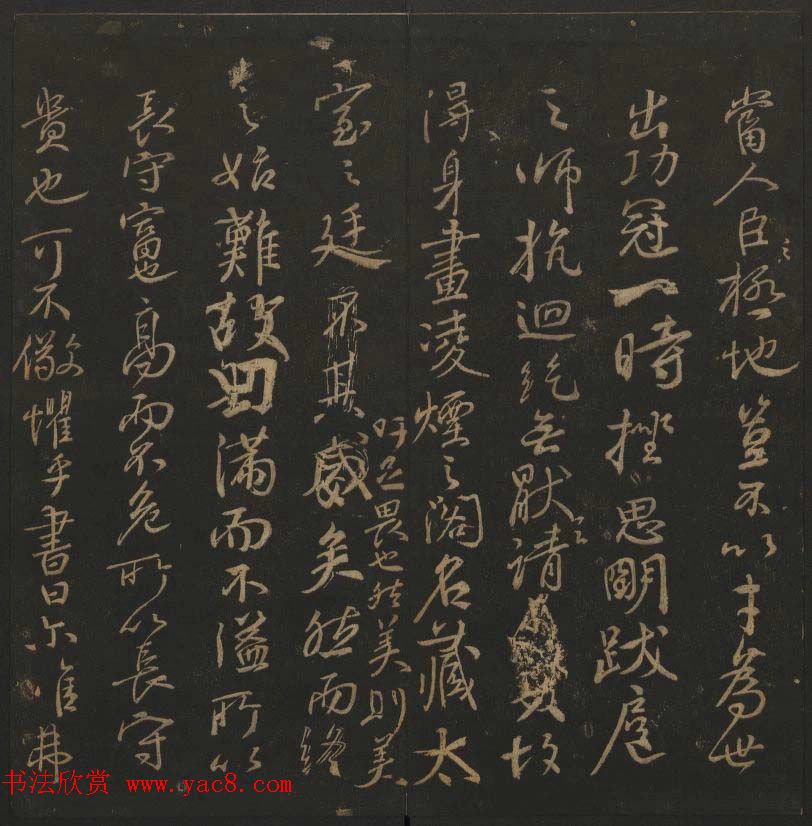 當人臣之極地豈不以才為世
出功冠一時挫思明跋扈
之師抗迴紇無厭之請故
得身畫凌煙之閣名藏太
室之廷吁足畏也然美則美
矣然而終
之始難故曰滿而不溢所以
長守富也高而不危所以長守
貴也可不儆懼乎書曰尒唯弗
书法欣赏 www.yac8.com